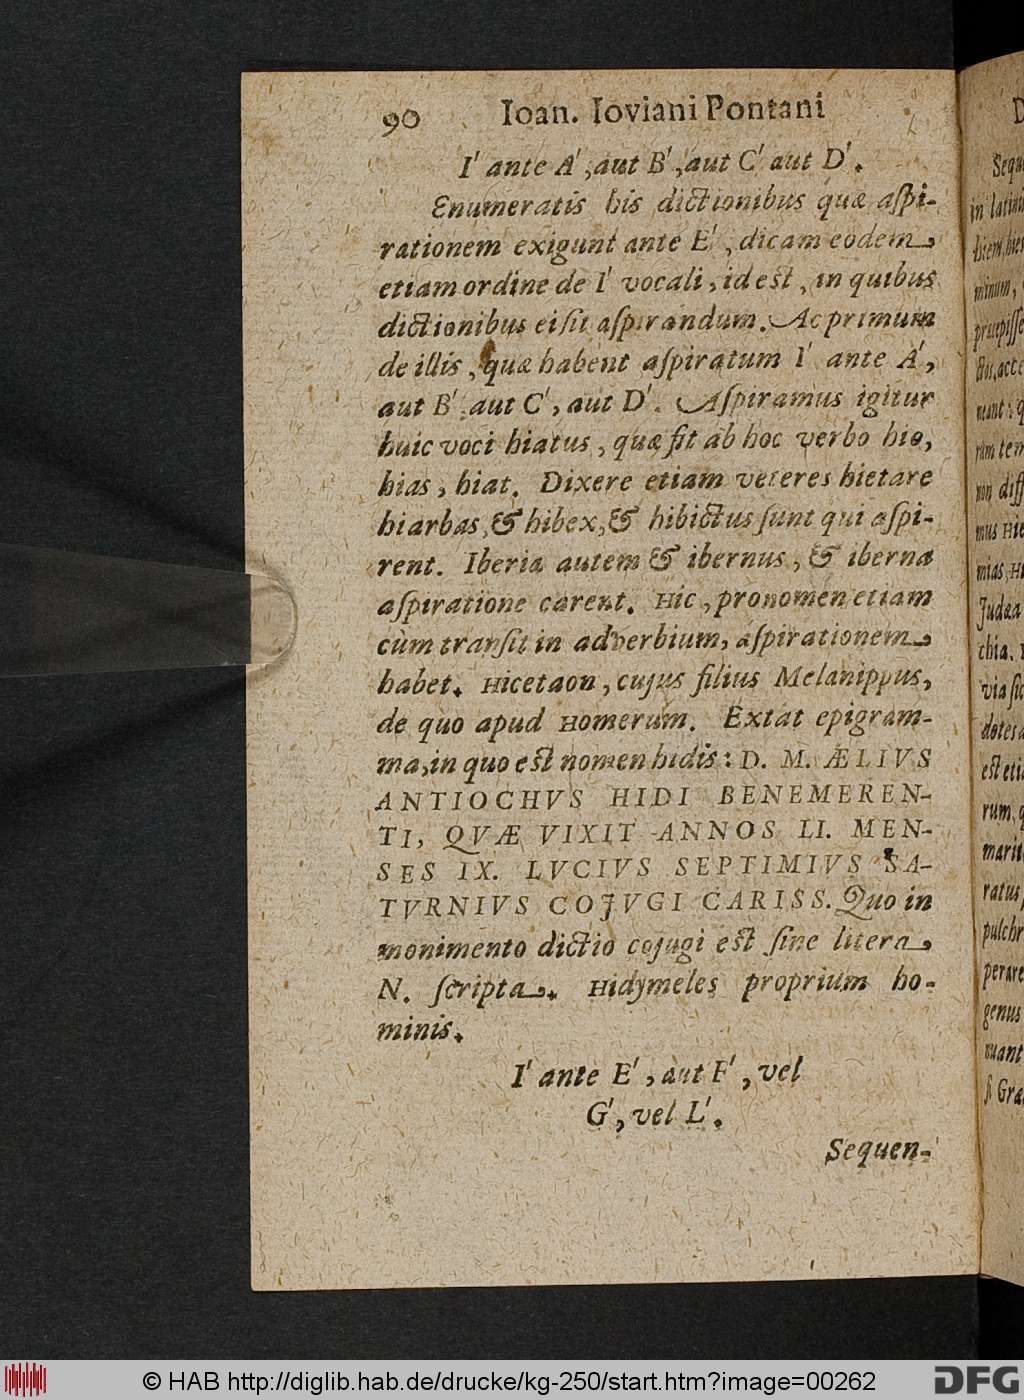 90 Ioan. Ioviani Pontani
I' ante A', aut B', aut C' aut D'.
Enumeratis his dictionibus quæ aſpi-
rationem exigunt ante E', dicam eodem
etiam ordine de I' vocali, id est, in quibus
dictionibus ei ſit aſpirandum. Ac primum
de illis, quæ habent aſpiratum I' ante A',
aut B' aut C', aut D'. Aſpiramus igitur
huic voci hiatus, quæ fit ab hoc verbo hio,
hias, hiat. Dixere etiam veteres hietare
hiarbas, & hibex, & hibictus ſunt qui aſpi-
rent. Iberia autem & ibernus, & iberna
aſpiratione carent. Hic, pronomen etiam
cùm tranſit in adverbium, aſpirationem
habet. Hicetaon, cujus filius Melanippus,
de quo apud Homerum. Extat epigram-
ma, in quo est nomen hidis: D. M. ÆLIVS
ANTIOCHVS HIDI BENEMEREN-
TI, QVÆ VIXIT ANNOS LI. MEN-
SES IX. LVCIVS SEPTIMIVS SA-
TVRNIVS COJVGI CARISS. Quo in
monimento dictio cojugi est ſine litera
N. ſcripta. Hidymeles proprium ho-
minis.
I' ante E', aut F', vel
G', vel L'.
Sequen-
D
Sequ
in latin
mus Hie
Judæa
chia.
via ſic
est etia
rum, q
ratus
pulchr
perare
genus
© HAB http://diglib.hab.de/drucke/kg-250/start.htm?image=00262
DFG